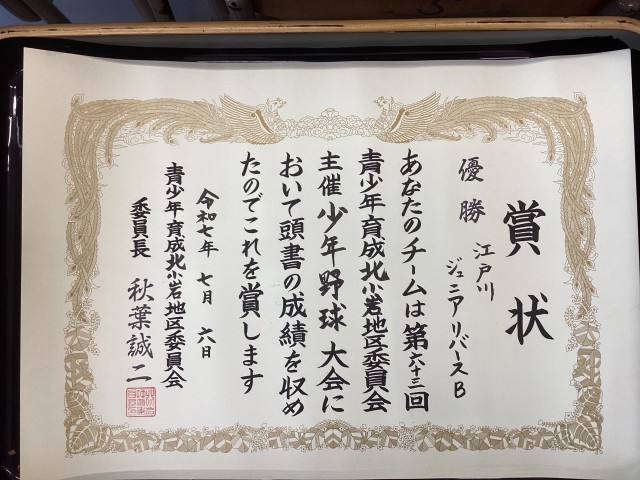 賞状
優勝
江戸川
ジュニアリバースB
あなたのチームは第六十三回
青少年育成北小岩地区委員会
主催少年野球大会に
おいて頭書の成績を収め
たのでこれを賞します
令和七年 七月 六日
青少年育成北小岩地区委員会
委員長 秋葉誠二